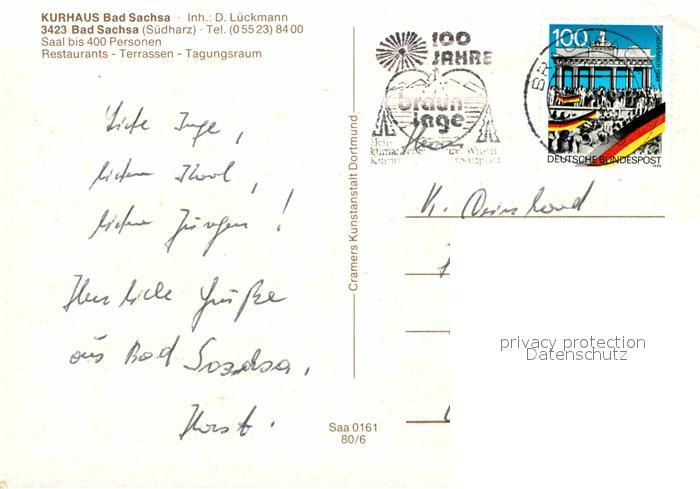 KURHAUS Bad Sachsa · Inh.: D. Lückmann
3423 Bad Sachsa (Südharz) · Tel. (0 55 23) 84 00
Saal bis 400 Personen
Restaurants - Terrassen - Tagungsraum
Liebe Inge,
lieber
lieber Jürgen!
Herzliche Grüße
aus Bad Sachsa,
Horst.
Cramers Kunstanstalt Dortmund
Saa 0161
80/6
100
JAHRE
braun
lage
100
DEUTSCHE BUNDESPOST
K.
privacy protection
Datenschutz